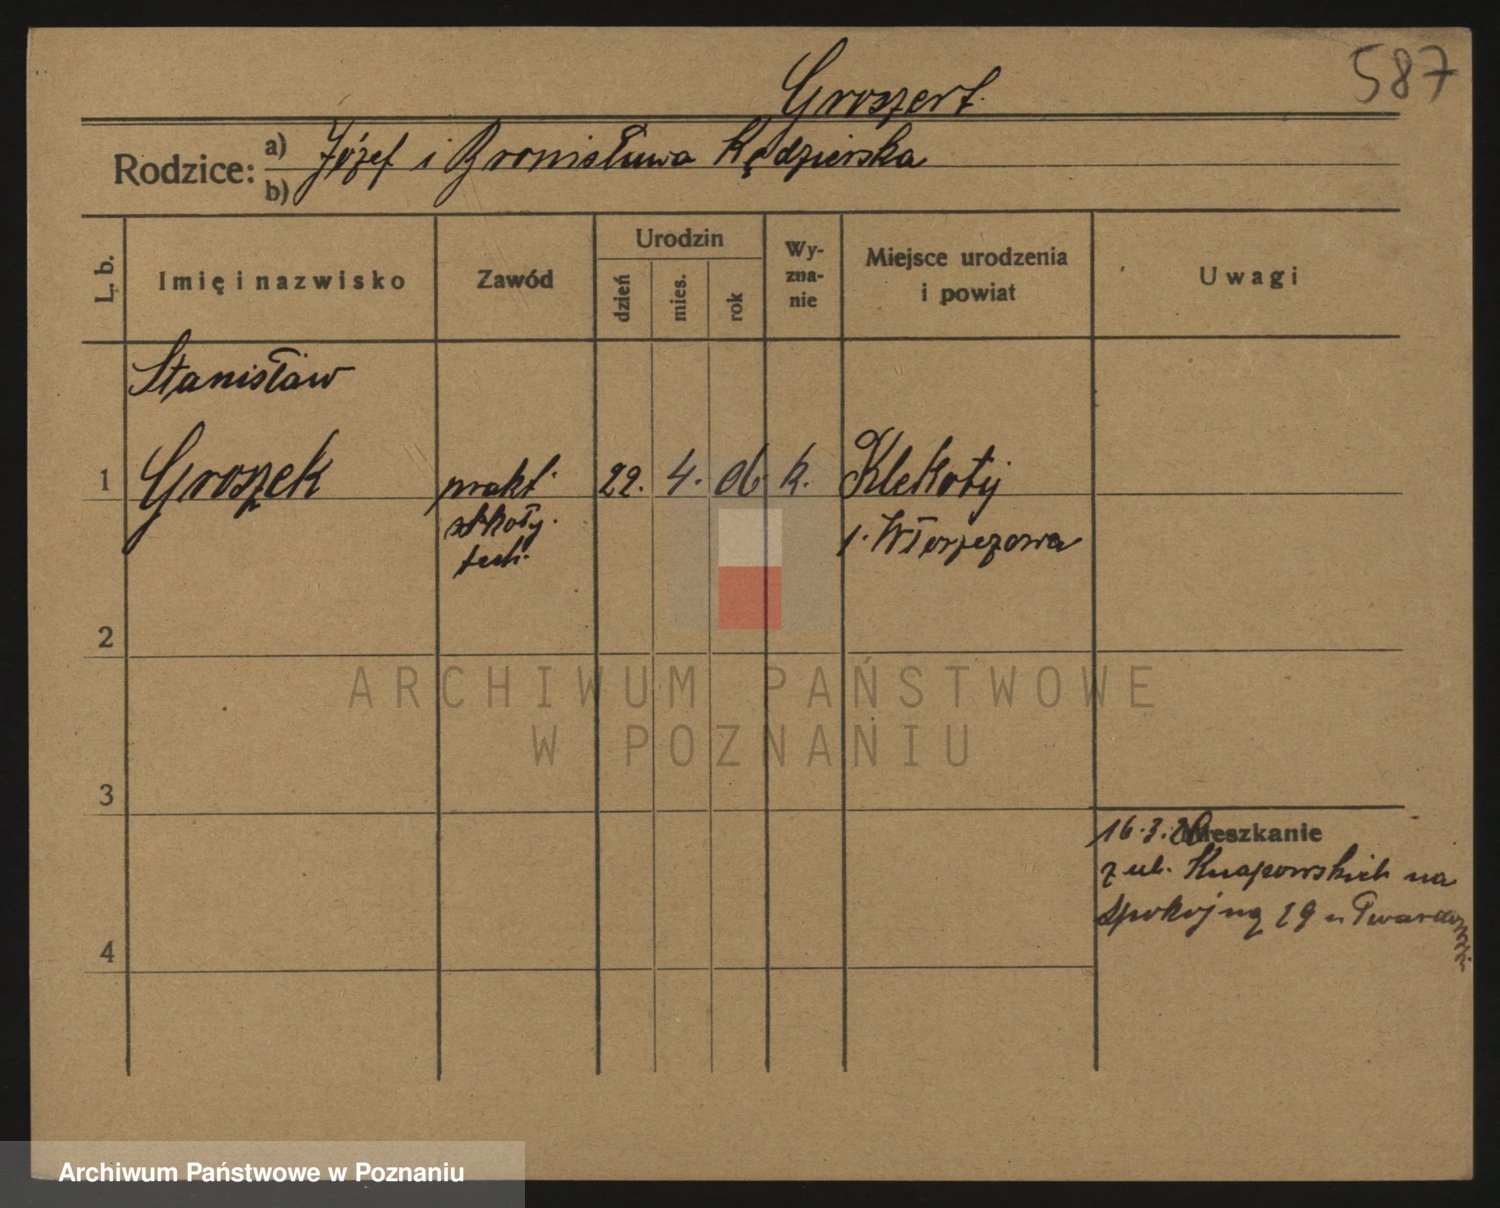 587
Groszert.
Rodzice: a) Józef i Bronisława Kędzierska
b)
L. b.
Imię i nazwisko
Zawód
Urodzin
dzień
mies.
rok
Wy-
zna-
nie
Miejsce urodzenia
i powiat
Uwagi
Stanisław
1 Groszek prakt. 22. 4. 06. k. Klekoty
szkoły. 1. Włoszczowa
tech.
2
3
4
16.3. Mieszkanie
z ul. Knapowskich na
Spokojną 29 u
ARCHIWUM PAŃSTWOWE
W POZNANIU
Archiwum Państwowe w Poznaniu